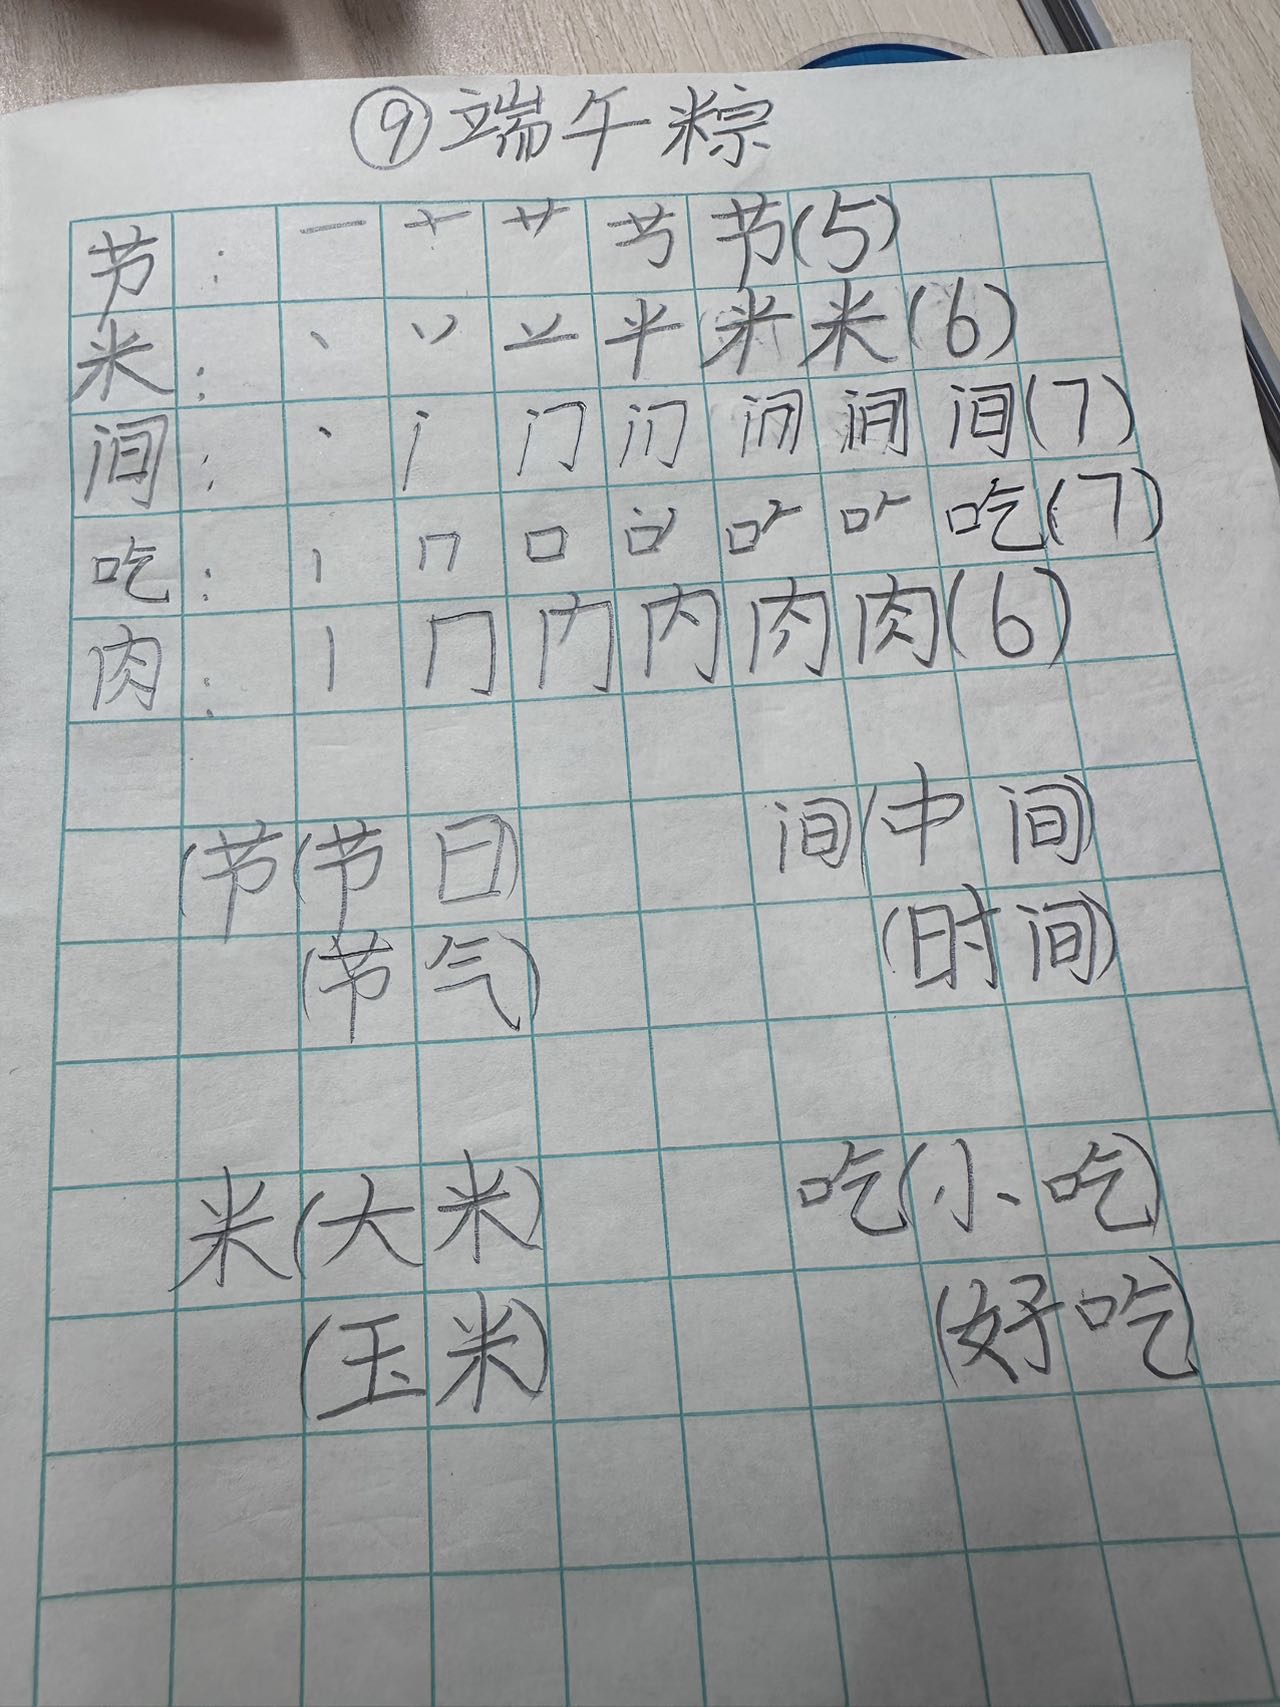 ⑨端午粽
节：一 十 艹 艿 节(5)
米：丶 丷 䒑 半 米 米(6)
间：丶 冫 门 门 间 间 间(7)
吃：丨 冂 口 口 吖 吖 吃(7)
肉：丨 冂 内 内 肉 肉(6)
(节(节日) 间(中间)
(节气) (时间)
米(大米) 吃(小吃)
(玉米) (好吃)